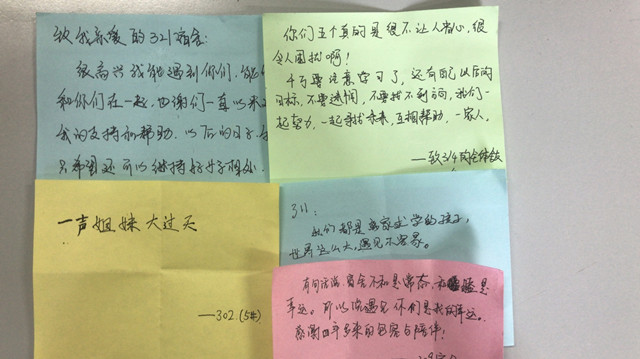 致我亲爱的321宿舍:
很高兴我能遇到你们,能
和你们在一起,也谢们一直以来
我的支持和帮助.以后的日子
只希望还可以继持好好相处.
你们五个真的是很不让人省心,很
令人困扰啊!
千万要注意学习了,还有自己以后的
目标,不要迷惘,不要找不到方向,我们一
起努力,一起寻找未来,互相帮助.一家人.
——致314的全体舍友
一声姐妹大过天
——302.(5#)
311:
我们都是离家求学的孩子,
世界这么大,遇见不容易。
有句话说,宿舍不和是常态,和睦是
幸运。所以能遇见你们是我的幸运。
感谢四年以来的包容与陪伴!